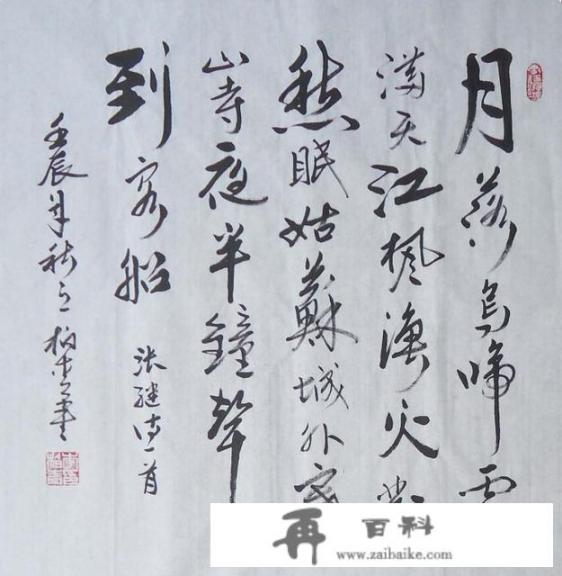 月落烏啼
满天江楓漁火
愁眠姑蘇城外
山寺夜半鐘聲
到客船 张继诗一首
壬辰年秋之
再 百科
www.zaibaike.com